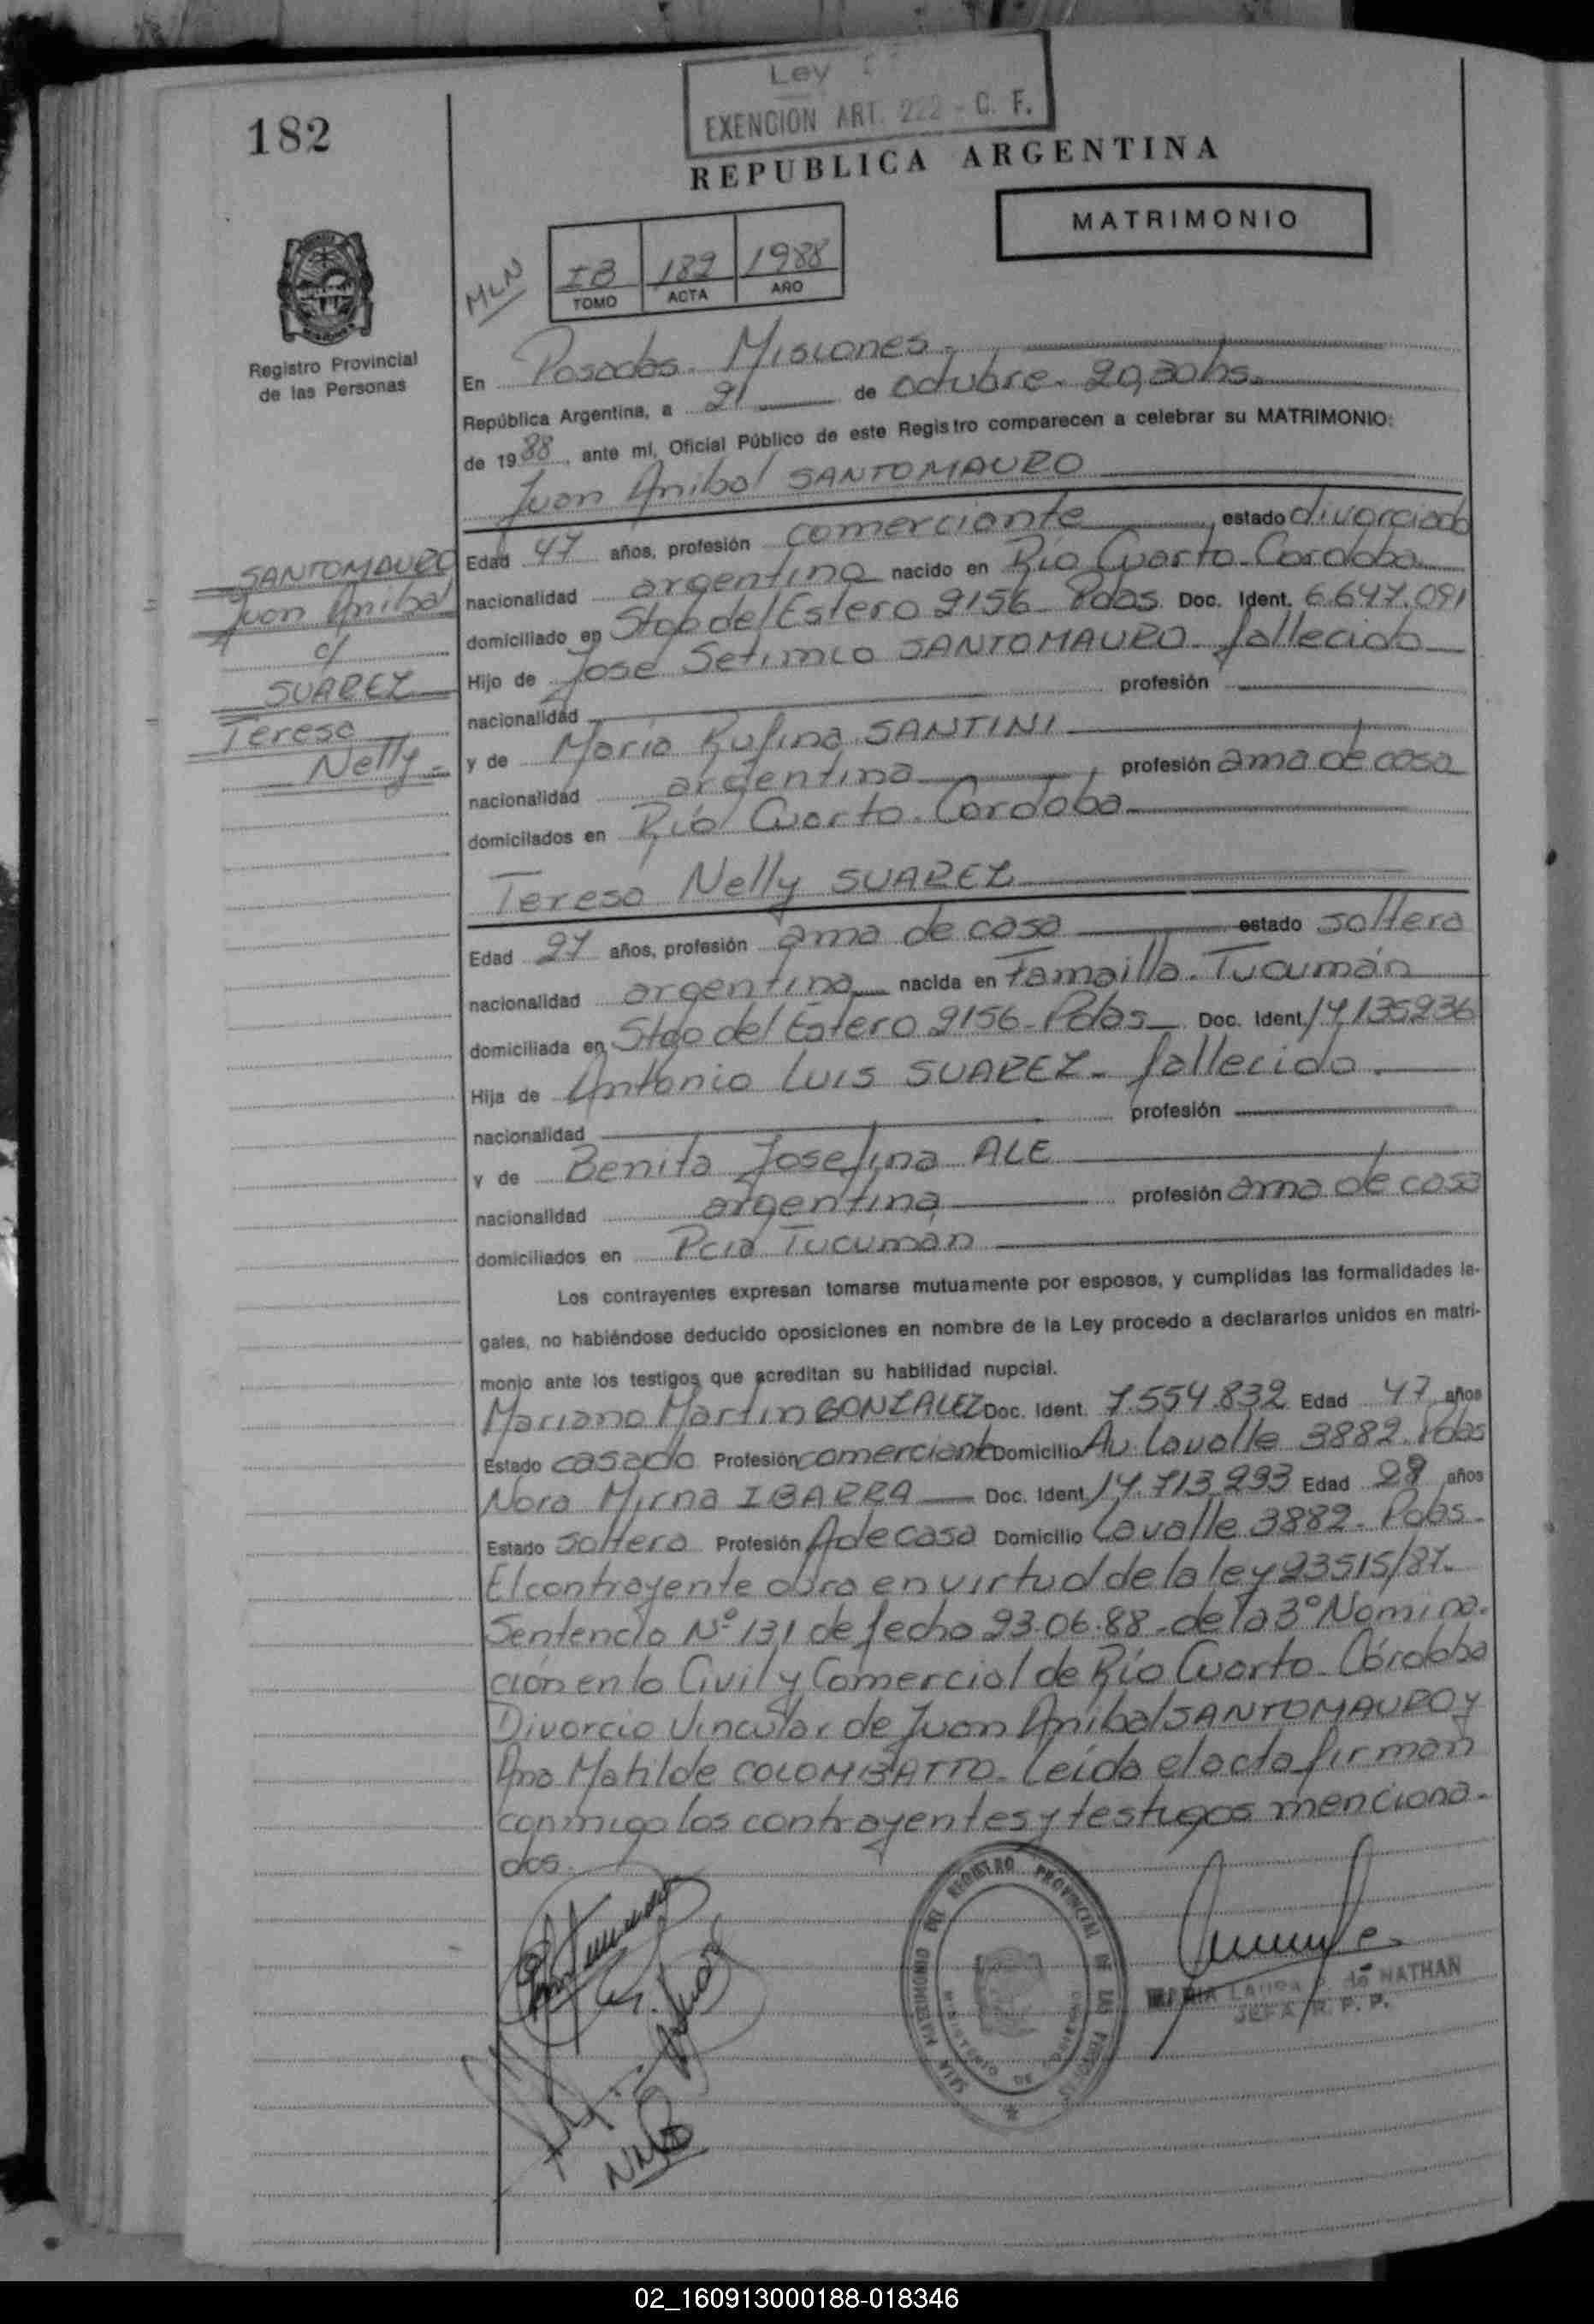 Ley
EXENCION ART. 222 - C. F.
182
REPUBLICA ARGENTINA
MATRIMONIO
MLN
IB 182 1988
TOMO ACTA AÑO
Registro Provincial
de las Personas
En Posadas. Misiones.
República Argentina, a 21 de octubre. 20,30hs.
de 1988, ante mí, Oficial Público de este Registro comparecen a celebrar su MATRIMONIO:
Juan Anibal SANTOMAURO
SANTOMAURO
Juan Anibal
c/
SUAREZ
Teresa
Nelly-
Edad 47 años, profesión comerciante, estado divorciado
nacionalidad argentina nacido en Río Cuarto-Cordoba
domiciliado en Stgo del Estero 2156- Pdas. Doc. Ident. 6.647.091
Hijo de Jose Setimio SANTOMAURO- fallecido
nacionalidad profesión
y de María Rufina SANTINI
nacionalidad argentina, profesión ama de casa
domicilados en Río Cuarto. Cordoba
Teresa Nelly SUAREZ
Edad 27 años, profesión ama de casa estado soltera
nacionalidad argentina nacida en Famailla. Tucumán
domiciliada en Stgo del Estero 2156-Pdas- Doc. Ident. 14.135236
Hija de Antonio Luis SUAREZ- fallecido.
nacionalidad profesión
y de Benita Josefina ALE
nacionalidad argentina profesión ama de casa
domiciliados en Pcia Tucumán
Los contrayentes expresan tomarse mutuamente por esposos, y cumplidas las formalidades le-
gales, no habiéndose deducido oposiciones en nombre de la Ley procedo a declararlos unidos en matri-
monio ante los testigos que acreditan su habilidad nupcial.
Mariano Martin GONZALEZ Doc. Ident. 7.554.832 Edad 47 años
Estado casado Profesión comerciante Domicilio Av. Lavalle 3882. Pdas
Nora Mirna IBARRA Doc. Ident. 14.713.293 Edad 28 años
Estado soltera Profesión A de casa Domicilio Lavalle 3882- Pdas-
El contrayente obra en virtud de la ley 23515/87.
Sentencia Nº 131 de fecha 23.06.88.de la 3º Nomina-
ción en lo Civil y Comercial de Río Cuarto-Córdoba
Divorcio Vincular de Juan Anibal SANTOMAURO y
Ana Matilde COLOMBATTO- Leída el acta firman
conmigo los contrayentes y testigos menciona-
dos.
SALA MATRIMONIO DEL REGISTRO PROVINCIAL DE LAS PERSONAS
MINISTERIO DE GOBIERNO
MARIA LAURA de NATHAN
JEFA R. P. P.
02_160913000188-018346